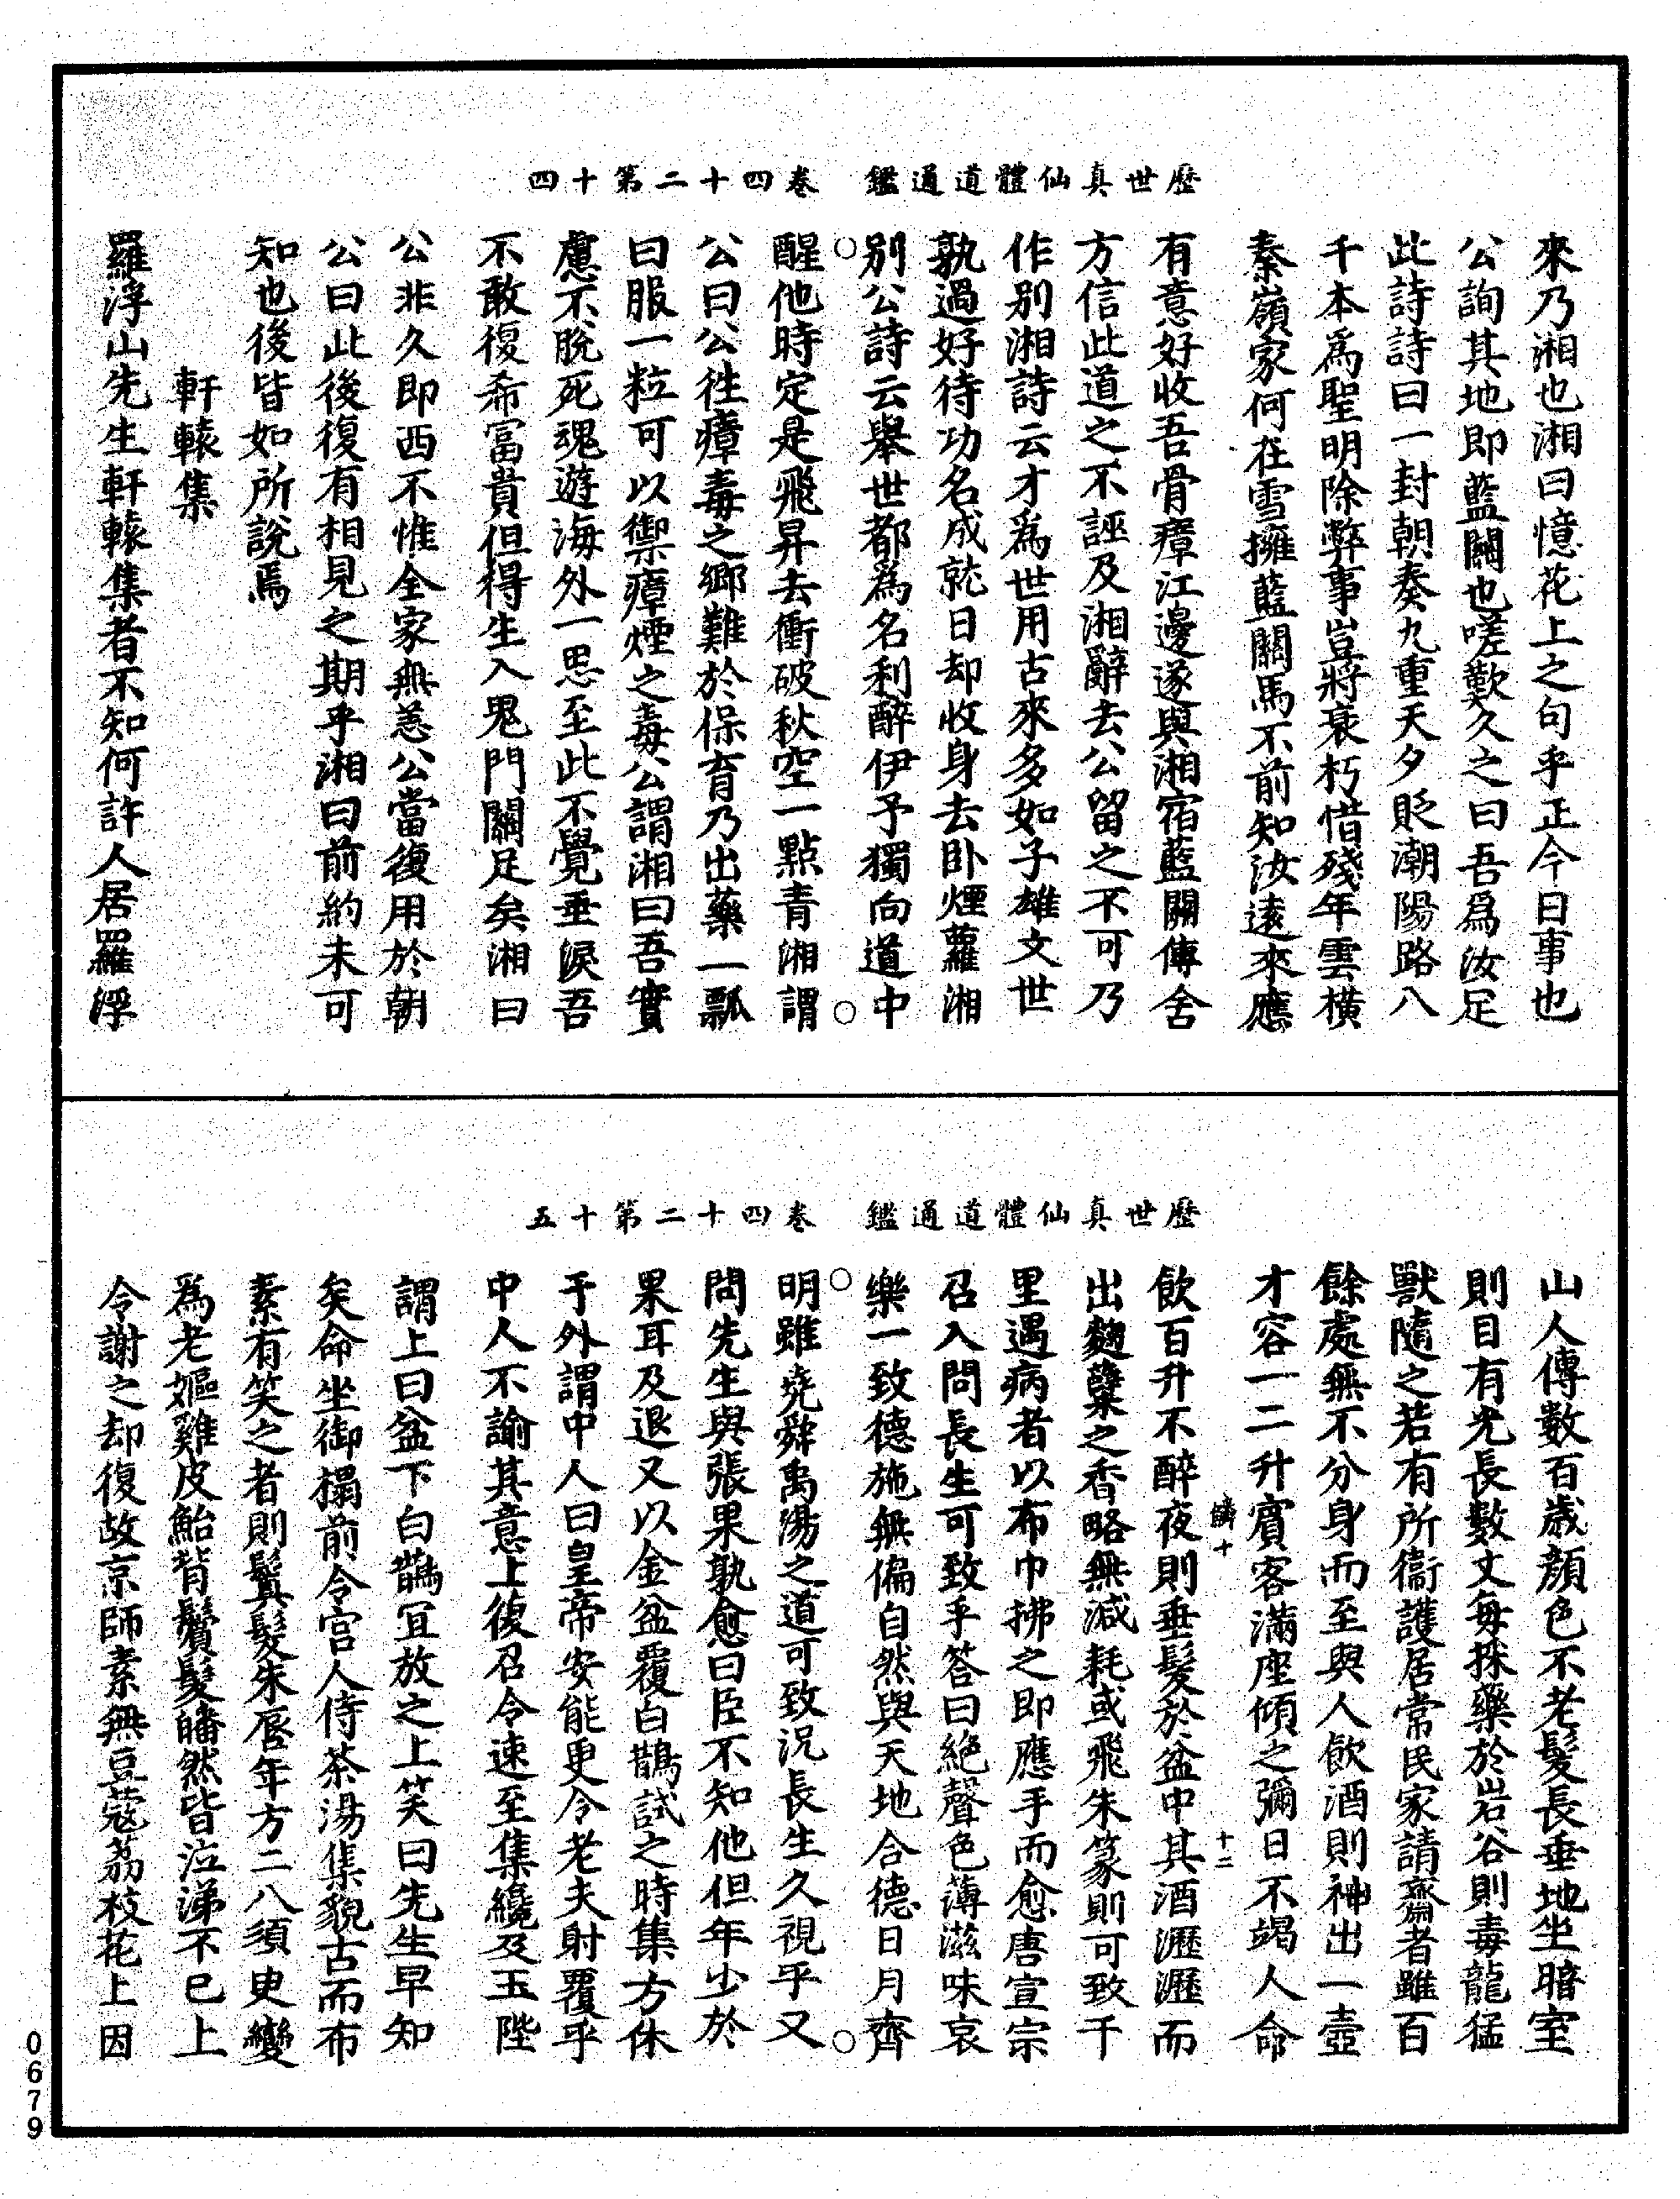 歷世真仙體道通鑑　卷四十二第十四
來乃湘也湘曰憶花上之句乎正今日事也
公詢其地即藍關也嗟歎久之曰吾爲汝足
此詩詩曰一封朝奏九重天夕貶潮陽路八
千本爲聖明除弊事豈將衰朽惜殘年雲橫
秦嶺家何在雪擁藍關馬不前知汝遠來應
有意好收吾骨瘴江邊遂與湘宿藍關傳舍
方信此道之不誣及湘辭去公留之不可乃
作别湘詩云才爲世用古來多如子雄文世
孰過好待功名成就日却收身去卧煙蘿湘
别公詩云舉世都爲名利醉伊予獨向道中
醒他時定是飛昇去衝破秋空一點青湘謂
公曰公往瘴毒之鄉難於保育乃出藥一瓢
曰服一粒可以禦瘴煙之毒公謂湘曰吾實
慮不脫死魂遊海外一思至此不覺垂淚吾
不敢復希富貴但得生入鬼門關足矣湘曰
公非久即西不惟全家無恙公當復用於朝
公曰此後復有相見之期乎湘曰前約未可
知也後皆如所說焉
軒轅集
羅浮山先生軒轅集者不知何許人居羅浮
歷世真仙體道通鑑　卷四十二第十五
山人傳数百歲顏色不老髮長垂地坐暗室
則目有光長數丈每採藥於岩谷則毒龍猛
獸隨之若有所衛護居常民家請齋者雖百
餘處無不分身而至與人飲酒則神出一壺
才容一二升賓客滿座傾之彌日不竭人命
鱗十　十二
飲百升不醉夜則垂髮於盆中其酒瀝瀝而
出麴糵之香略無减耗或飛朱篆則可致千
里遇病者以布巾拂之即應手而愈唐宣宗
召入問長生可致乎答曰絶聲色薄滋味哀
樂一致德施無偏自然與天地合德日月齊
明雖堯舜禹湯之道可致况長生久視乎又
問先生與張果孰愈曰臣不知他但年少於
果耳及退又以金盆覆白鵲試之時集方休
于外謂中人曰皇帝安能更令老夫射覆乎
中人不諭其意上復召令速至集纔及玉陛
謂上曰盆下白鵲宜放之上笑曰先生早知
矣命坐御榻前令宫人侍茶湯集貌古而布
素有笑之者則鬒髮朱唇年方二八須臾變
爲老嫗雞皮鮐背鬢髮皤然皆泣涕不已上
令謝之却復故京師素無豆蔻荔枝花上因
0679